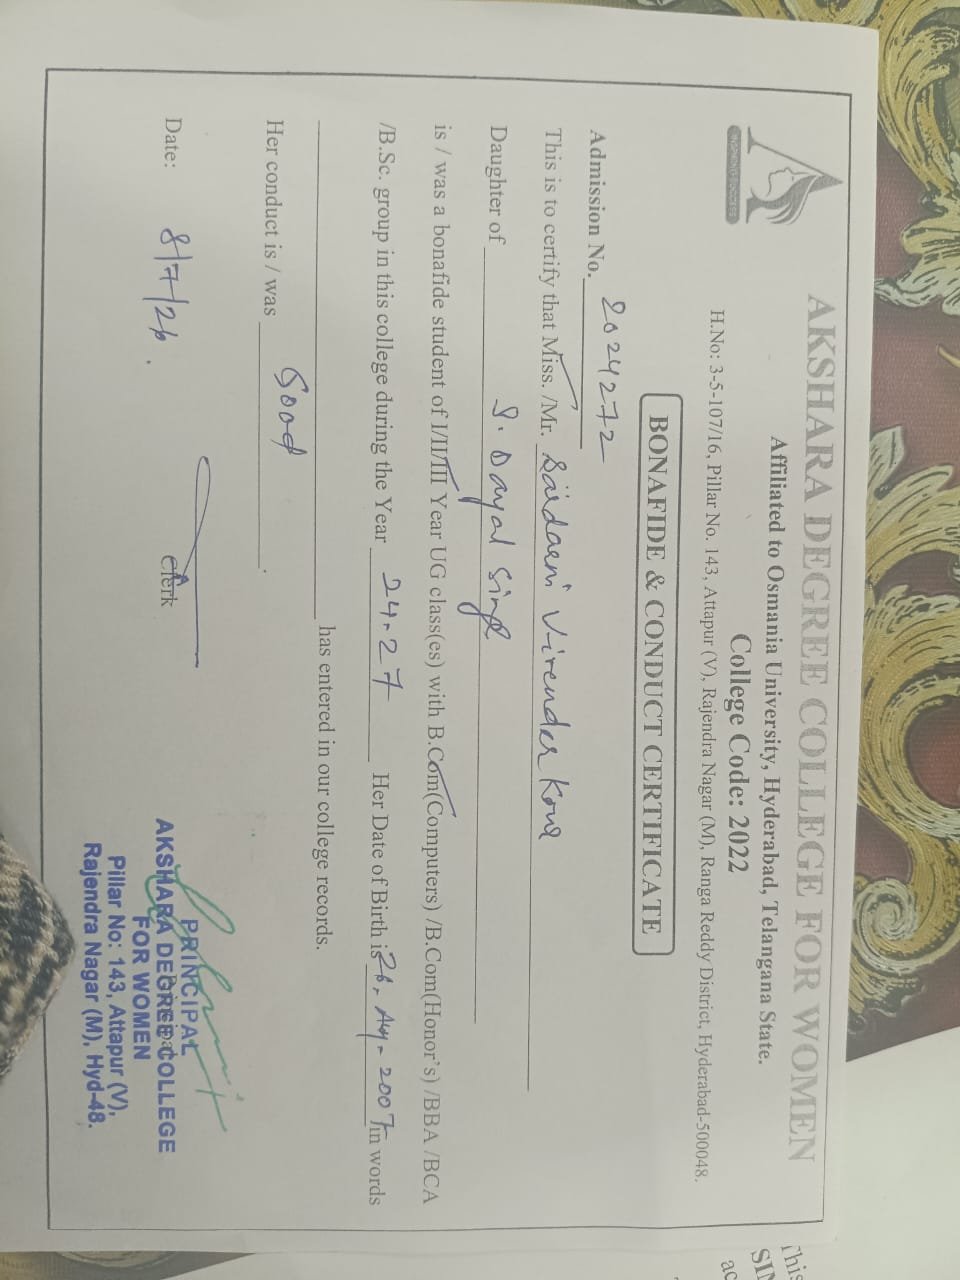 INSPIRING SUCCESS
AKSHARA DEGREE COLLEGE FOR WOMEN
Affiliated to Osmania University, Hyderabad, Telangana State.
College Code: 2022
H.No: 3-5-107/16, Pillar No. 143, Attapur (V), Rajendra Nagar (M), Ranga Reddy District, Hyderabad-500048.
BONAFIDE & CONDUCT CERTIFICATE
Admission No. 2024272
This is to certify that Miss. /Mr. Sardarni Virender Kour
Daughter of S. Dayal Singh
is / was a bonafide student of I/II/III Year UG class(es) with B.Com(Computers) /B.Com(Honor's) /BBA /BCA
/B.Sc. group in this college during the Year 24-27 Her Date of Birth is 28-Aug-2007 in words
has entered in our college records.
Her conduct is / was Good.
Date: 8/7/26.
Clerk
Principal
PRINCIPAL
AKSHARA DEGREE COLLEGE
FOR WOMEN
Pillar No: 143, Attapur (V),
Rajendra Nagar (M), Hyd-48.
This